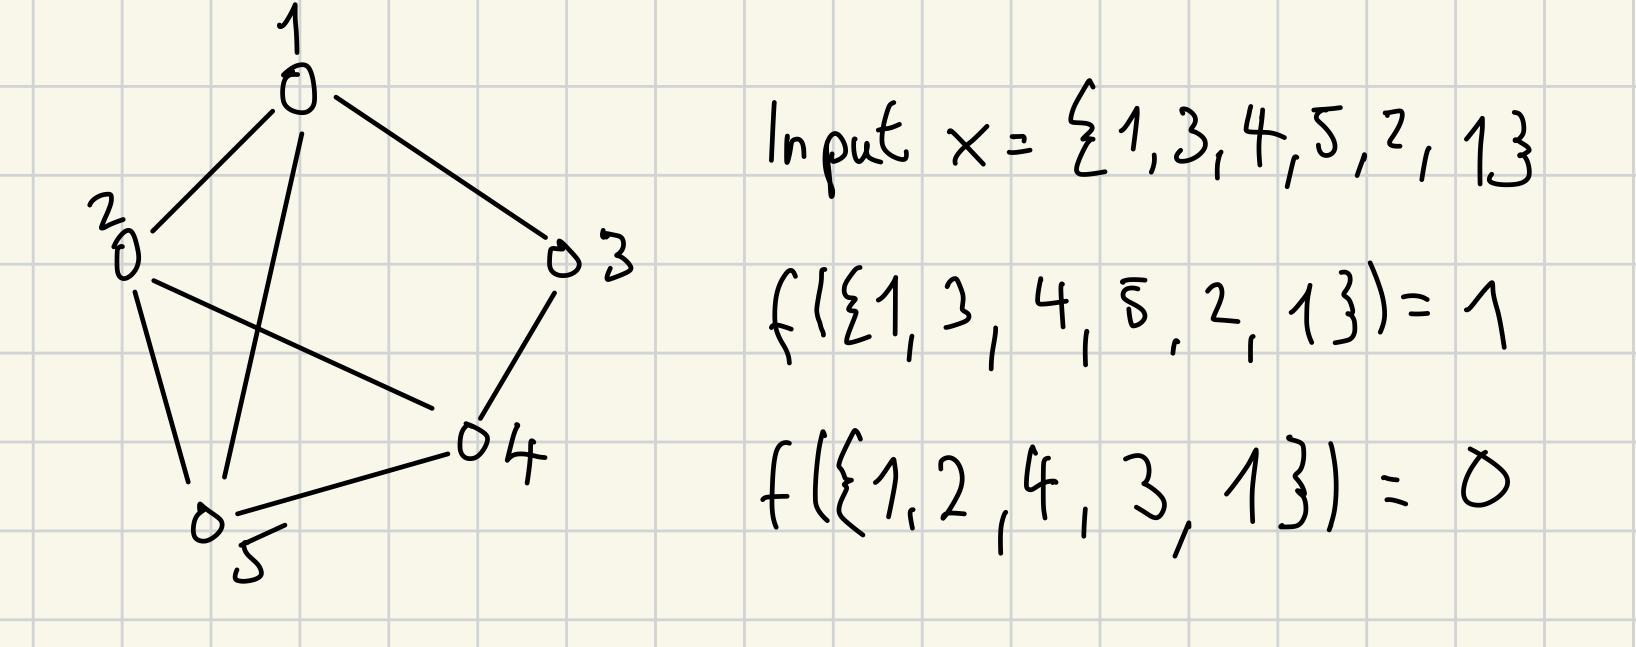 1
0
2
0
0 3
0 4
0
5
Input x = {1, 3, 4, 5, 2, 1}
f({1, 3, 4, 5, 2, 1}) = 1
f({1, 2, 4, 3, 1}) = 0